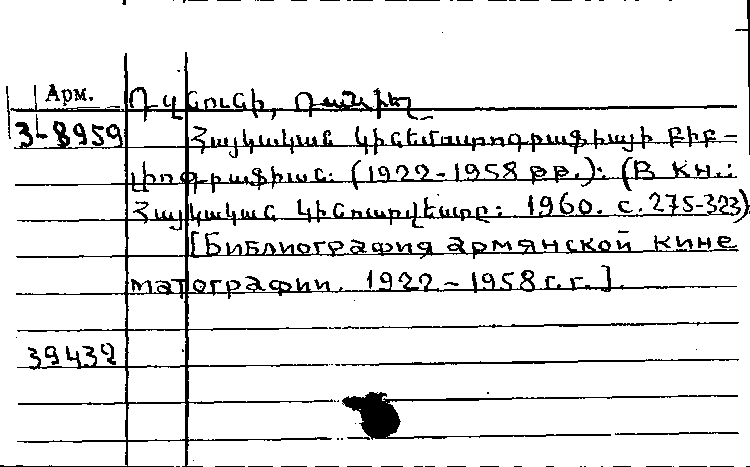 Арм.
Դզնունի, Դանիել
3-8959
Հայկական կինեմատոգրաֆիայի բիբ-
լիոգրաֆիան: (1922-1958 թթ.): (В кн.:
Հայկական կինոարվեստը: 1960. с. 275-323)
[Библиография армянской кине
матографии. 1922-1958 г.г.].
39432